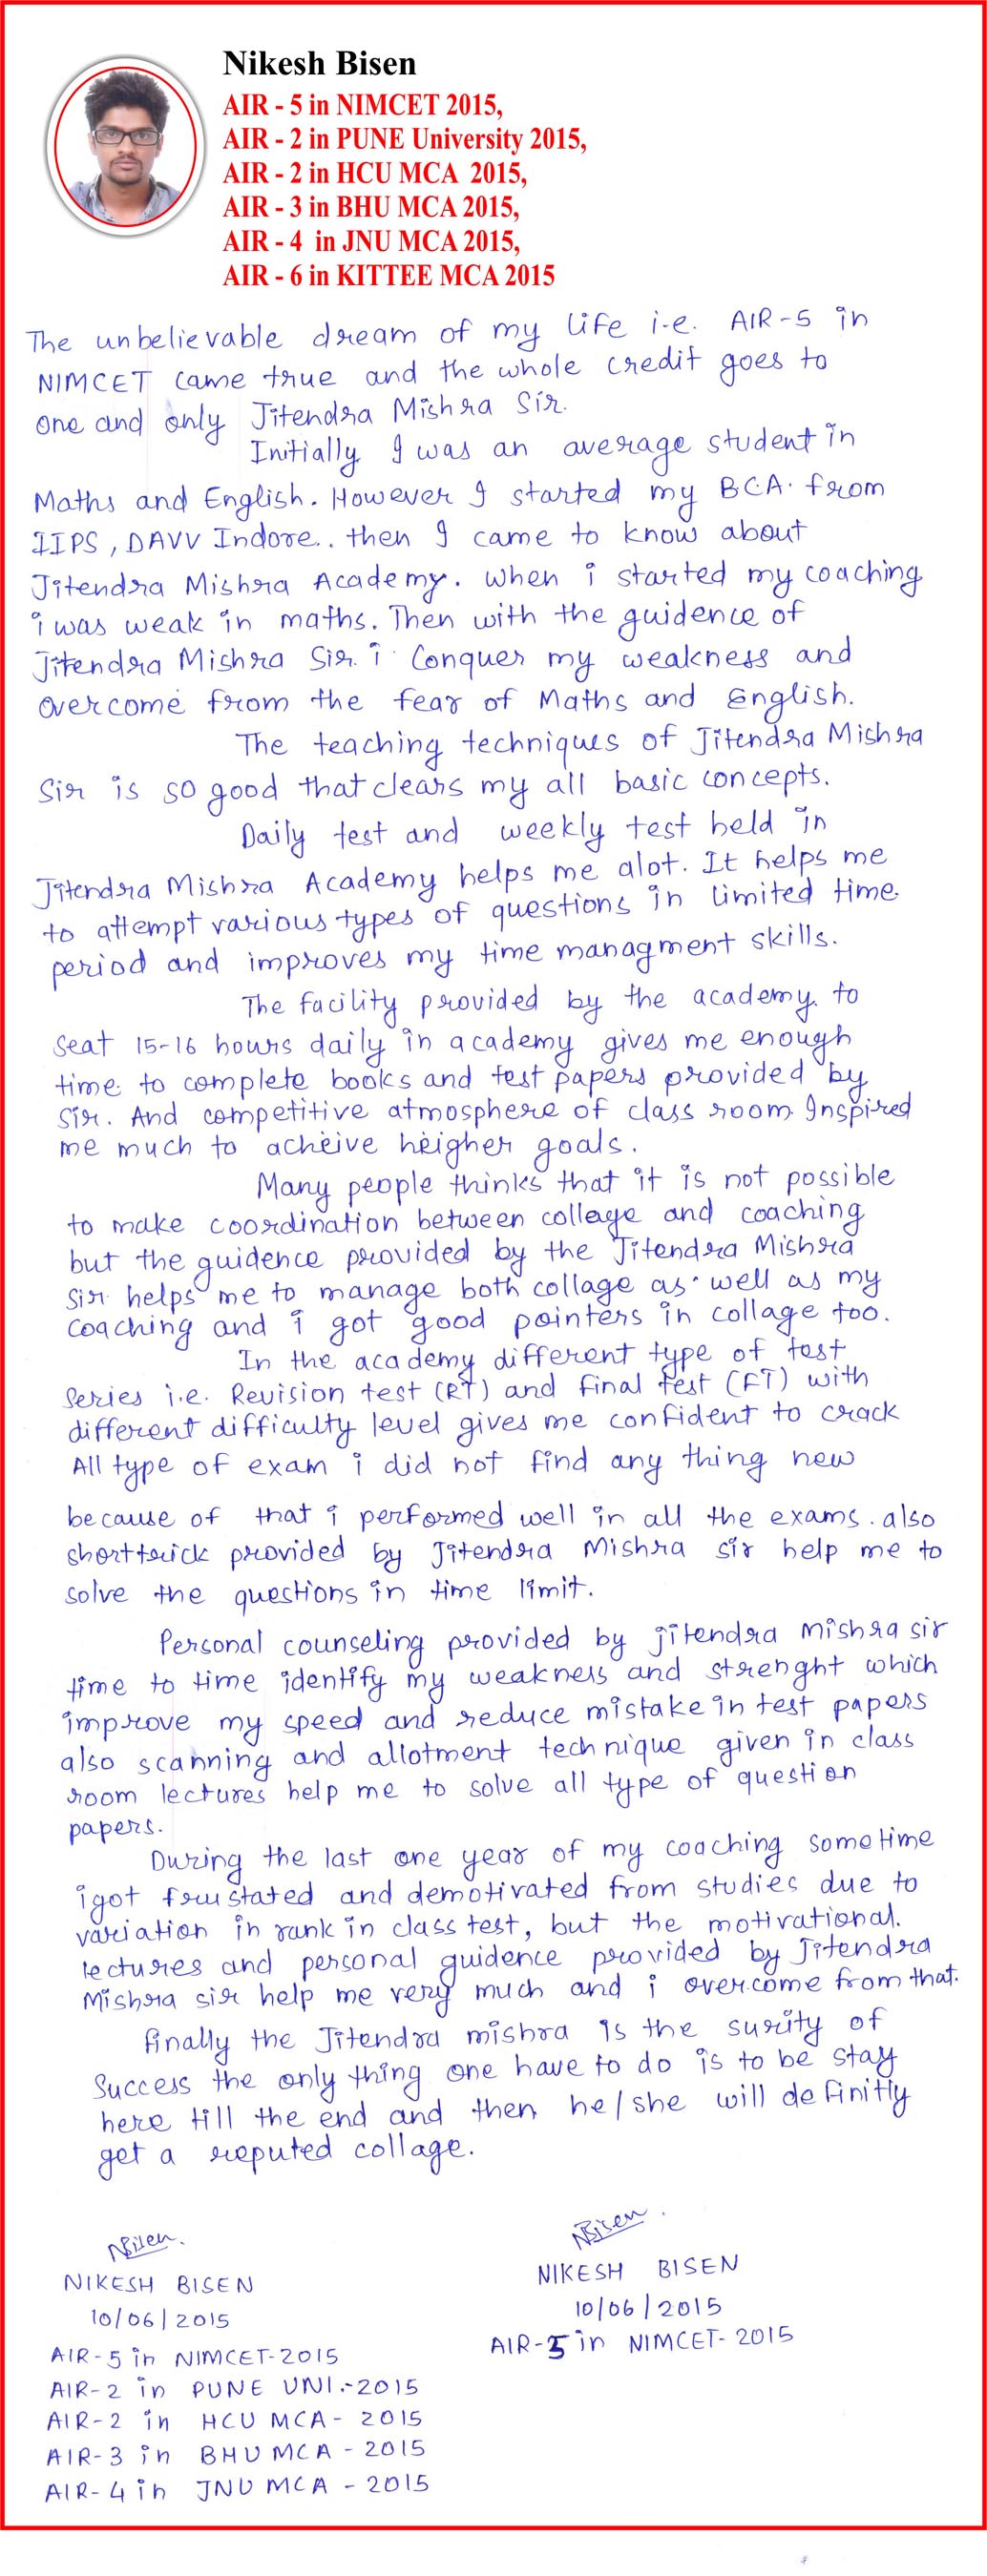 Nikesh Bisen
AIR - 5 in NIMCET 2015,
AIR - 2 in PUNE University 2015,
AIR - 2 in HCU MCA 2015,
AIR - 3 in BHU MCA 2015,
AIR - 4 in JNU MCA 2015,
AIR - 6 in KITTEE MCA 2015
The unbelievable dream of my life i.e. AIR-5 in
NIMCET came true and the whole credit goes to
one and only Jitendra Mishra Sir.
Initially I was an average student in
Maths and English. However I started my BCA. from
IIPS, DAVV Indore.. then I came to know about
Jitendra Mishra Academy. When i started my coaching
i was weak in maths. Then with the guidence of
Jitendra Mishra Sir. i conquer my weakness and
overcome from the fear of Maths and English.
The teaching techniques of Jitendra Mishra
Sir is so good that clears my all basic concepts.
Daily test and weekly test held in
Jitendra Mishra Academy helps me alot. It helps me
to attempt various types of questions in limited time.
period and improves my time managment skills.
The facility provided by the academy. to
seat 15-16 hours daily in academy gives me enough
time. to complete books and test papers provided by
Sir. And competitive atmosphere of class room Inspired
me much to acheive heigher goals.
Many people thinks that it is not possible
to make coordination between college and coaching
but the guidence provided by the Jitendra Mishra
Sir helps me to manage both collage as well as my
coaching and i got good pointers in collage too.
In the academy different type of test
series i.e. Revision test (RT) and final test (FT) with
different difficulty level gives me confident to crack
All type of exam i did not find any thing new
because of that i performed well in all the exams. also
shorttrick provided by Jitendra Mishra sir help me to
solve the questions in time limit.
Personal counseling provided by jitendra mishra sir
time to time identify my weakness and strenght which
improve my speed and reduce mistake in test papers
also scanning and allotment technique given in class
room lectures help me to solve all type of question
papers.
During the last one year of my coaching sometime
i got frustated and demotivated from studies due to
variation in rank in class test, but the motivational.
lectures and personal guidence provided by Jitendra
Mishra sir help me very much and i overcome from that.
finally the Jitendra mishra is the surity of
Success the only thing one have to do is to be stay
here till the end and then he/she will definitly
get a reputed collage.
NBisen.
NBisen.
NIKESH BISEN
NIKESH BISEN
10/06/2015
10/06/2015
AIR-5 in NIMCET-2015
AIR-5 in NIMCET-2015
AIR-2 in PUNE UNI.-2015
AIR-2 in HCU MCA - 2015
AIR-3 in BHU MCA - 2015
AIR-4 in JNU MCA - 2015